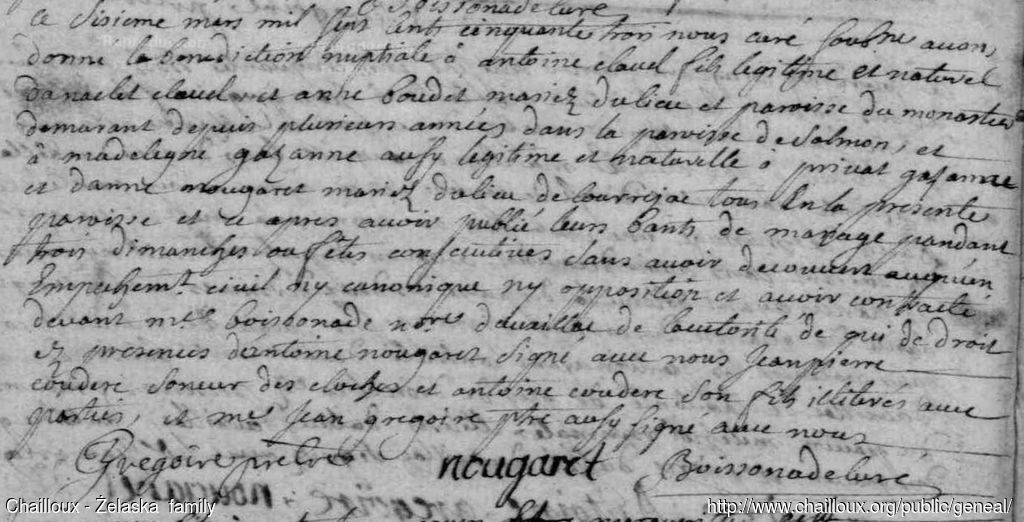 Boissonade curé
Ce sisieme mars mil sept cents cinquante trois nous curé soubsne avons
donne la benediction nuptiale à antoine clavel fils legitime et naturel
danaclet clavel et anne boudet mariez du lieu et paroisse du monastier
demurant depuis plusieurs années dans la paroisse de Salmon, et
à madelegne gazanne aussy legitime et naturelle à privat gazanne
et danne nougaret mariez du lieu de courrejac tous en la presente
paroisse et ce apres avoir publié leurs bants de mariage pandant
trois dimanches ou fêtes consecutives sans avoir decouvert aucquun
Empechemt civil ny canonique ny opposition et avoir contracté
devant me boissonade nore de lautorité de qui de droit
ez presences dantoine nougaret signé avec nous Jean pierre
coudere soneur des cloches et antoine coudere son fils illiterés avec
parties, et me Jean gregoire ptre aussy signé avec nous
Gregoire pretre nougaret Boissonade curé
Chailloux - Żelaska family
http://www.chailloux.org/public/geneal/